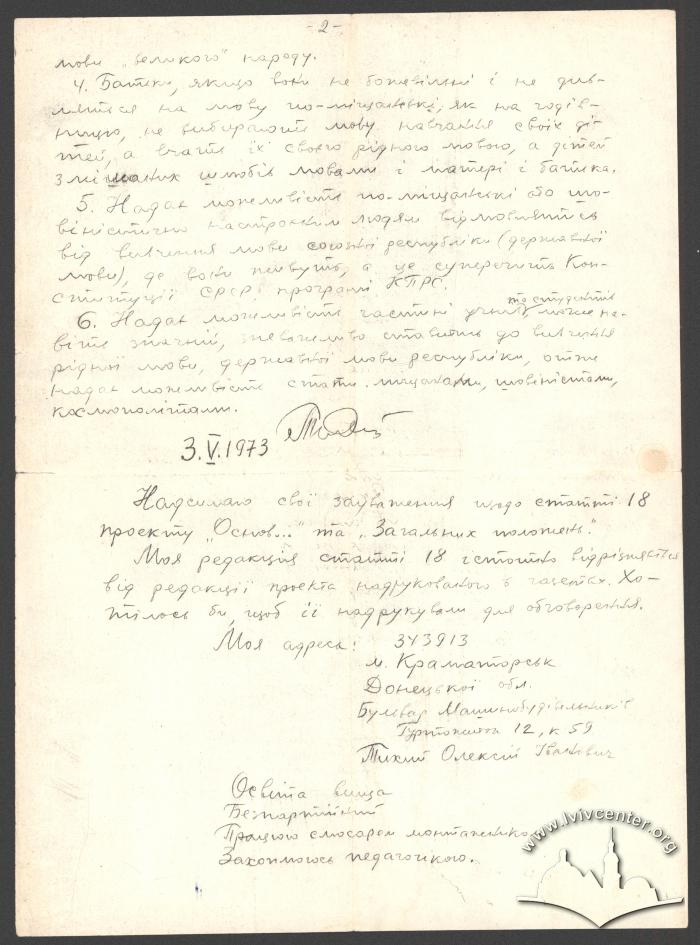 - 2 -
мови „великого" народу.
4. Батьки, якщо вони не божевільні і не див-
ляться на мову по-міщанські, як на годів-
ницю, не вибирають мову навчання своїх ді-
тей, а вчать їх своєю рідною мовою, а дітей
змішаних шлюбів мовами і матері і батька.
5. Надає можливість по-міщанські або шо-
віністично настроєним людям відмовлятись
від вивчення мови союзної республіки (державної
мови), де вони живуть, а це суперечить Кон-
ституції СРСР, програмі КПРС.
та студентів
6. Надає можливість частині учнів, може на-
віть значній, зневажливо ставитись до вивчення
рідної мови, державної мови республіки, отже
надає можливість стати міщанами, шовіністами,
космополітами.
3.V.1973
Надсилаю свої зауваження щодо статті 18
проекту „Основ..." та „Загальних положень".
Моя редакція статті 18 істотно відрізняється
від редакції проекта надрукованого в газетах. Хо-
тілось би, щоб її надрукували для обговорення.
Моя адреса: 343913
м. Краматорськ
Донецької обл.
Бульвар Машинобудівельників
Гуртожиток 12, к 59
Тихий Олексій Іванович
Освіта вища
Безпартійний
Працюю слюсарем монтажником
Захоплююсь педагогікою.
www.lvivcenter.org